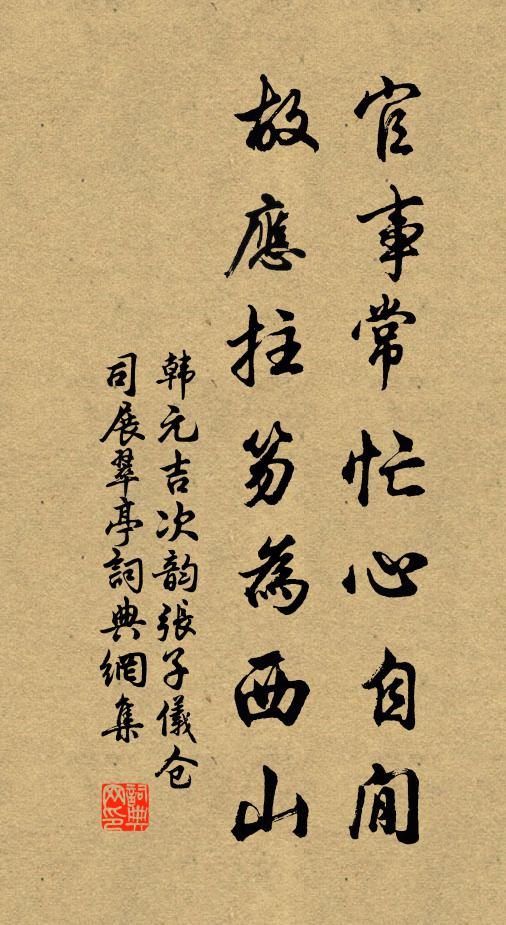 官事常忙心自閒
故應拄笏為西山
韩元吉次韵張子儀仓
司展翠亭詞典網集
詞典网印